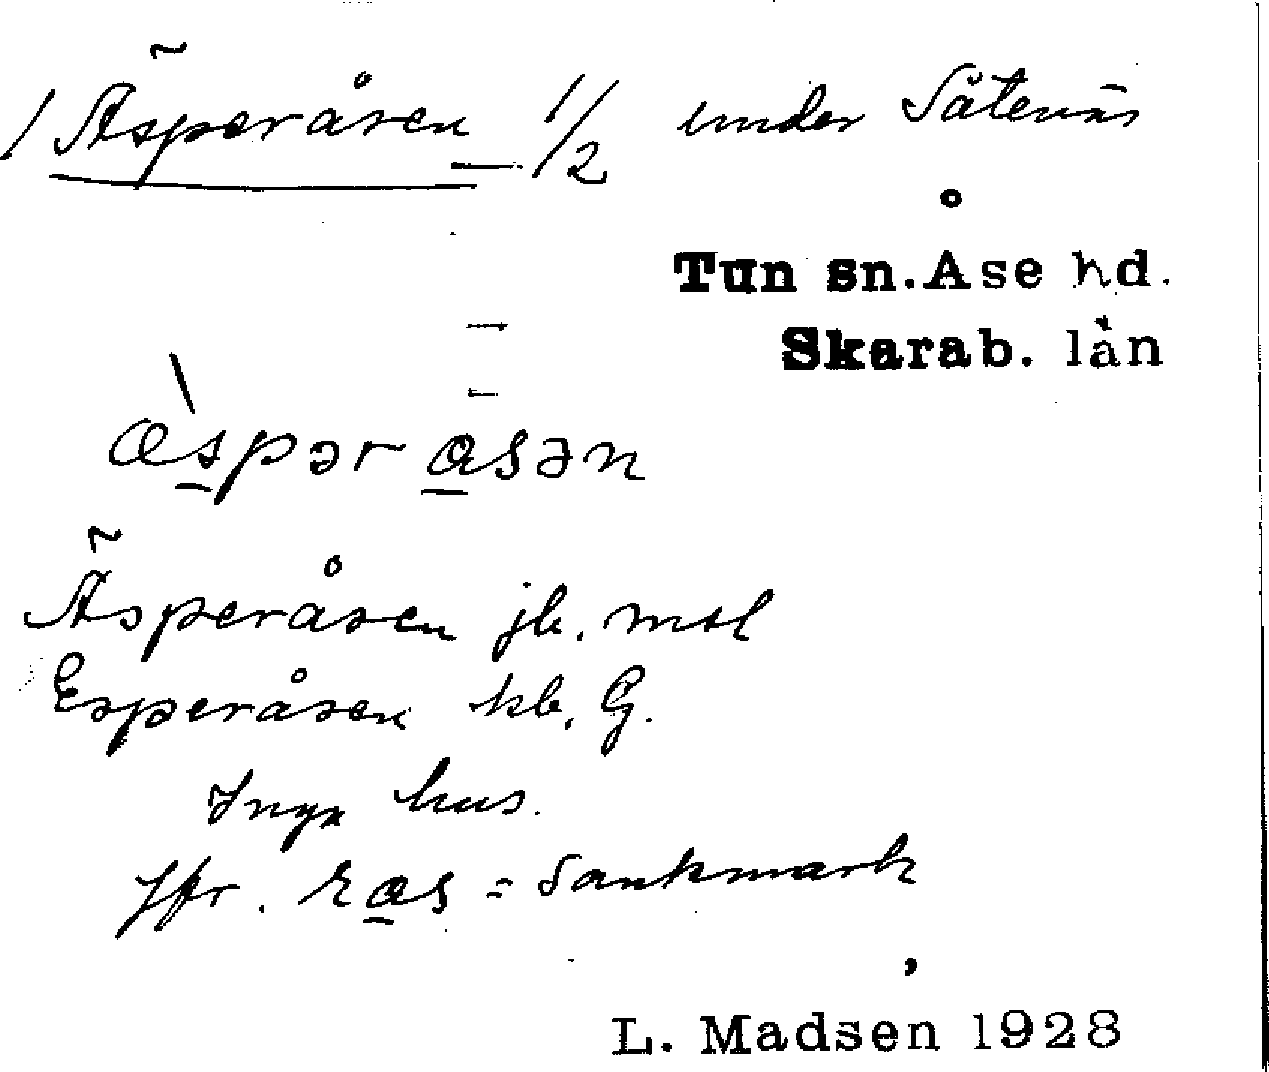 1 Äsperåsen 1/2 under Såtenäs
Tun sn. Åse hd.
Skarab. län
æ̀spər ɑsən
Äsperåsen jb, msl
Esperåsen kb, G.
Inga hus.
Jfr. rɑs = Sankmark
L. Madsen 1928